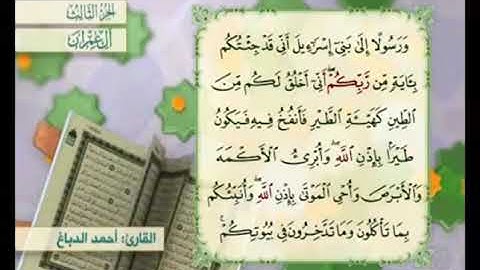 الجزء الثالث
آل عمران
وَرَسُولًا إِلَىٰ بَنِي إِسْرَائِيلَ أَنِّي قَدْ جِئْتُكُم
بِآيَةٍ مِّن رَّبِّكُمْ ۖ أَنِّي أَخْلُقُ لَكُم مِّنَ
الطِّينِ كَهَيْئَةِ الطَّيْرِ فَأَنفُخُ فِيهِ فَيَكُونُ
طَيْرًا بِإِذْنِ اللَّهِ ۖ وَأُبْرِئُ الْأَكْمَهَ
وَالْأَبْرَصَ وَأُحْيِي الْمَوْتَىٰ بِإِذْنِ اللَّهِ ۖ وَأُنَبِّئُكُم
بِمَا تَأْكُلُونَ وَمَا تَدَّخِرُونَ فِي بُيُوتِكُمْ ۚ
القارئ: أحمد الدباغ